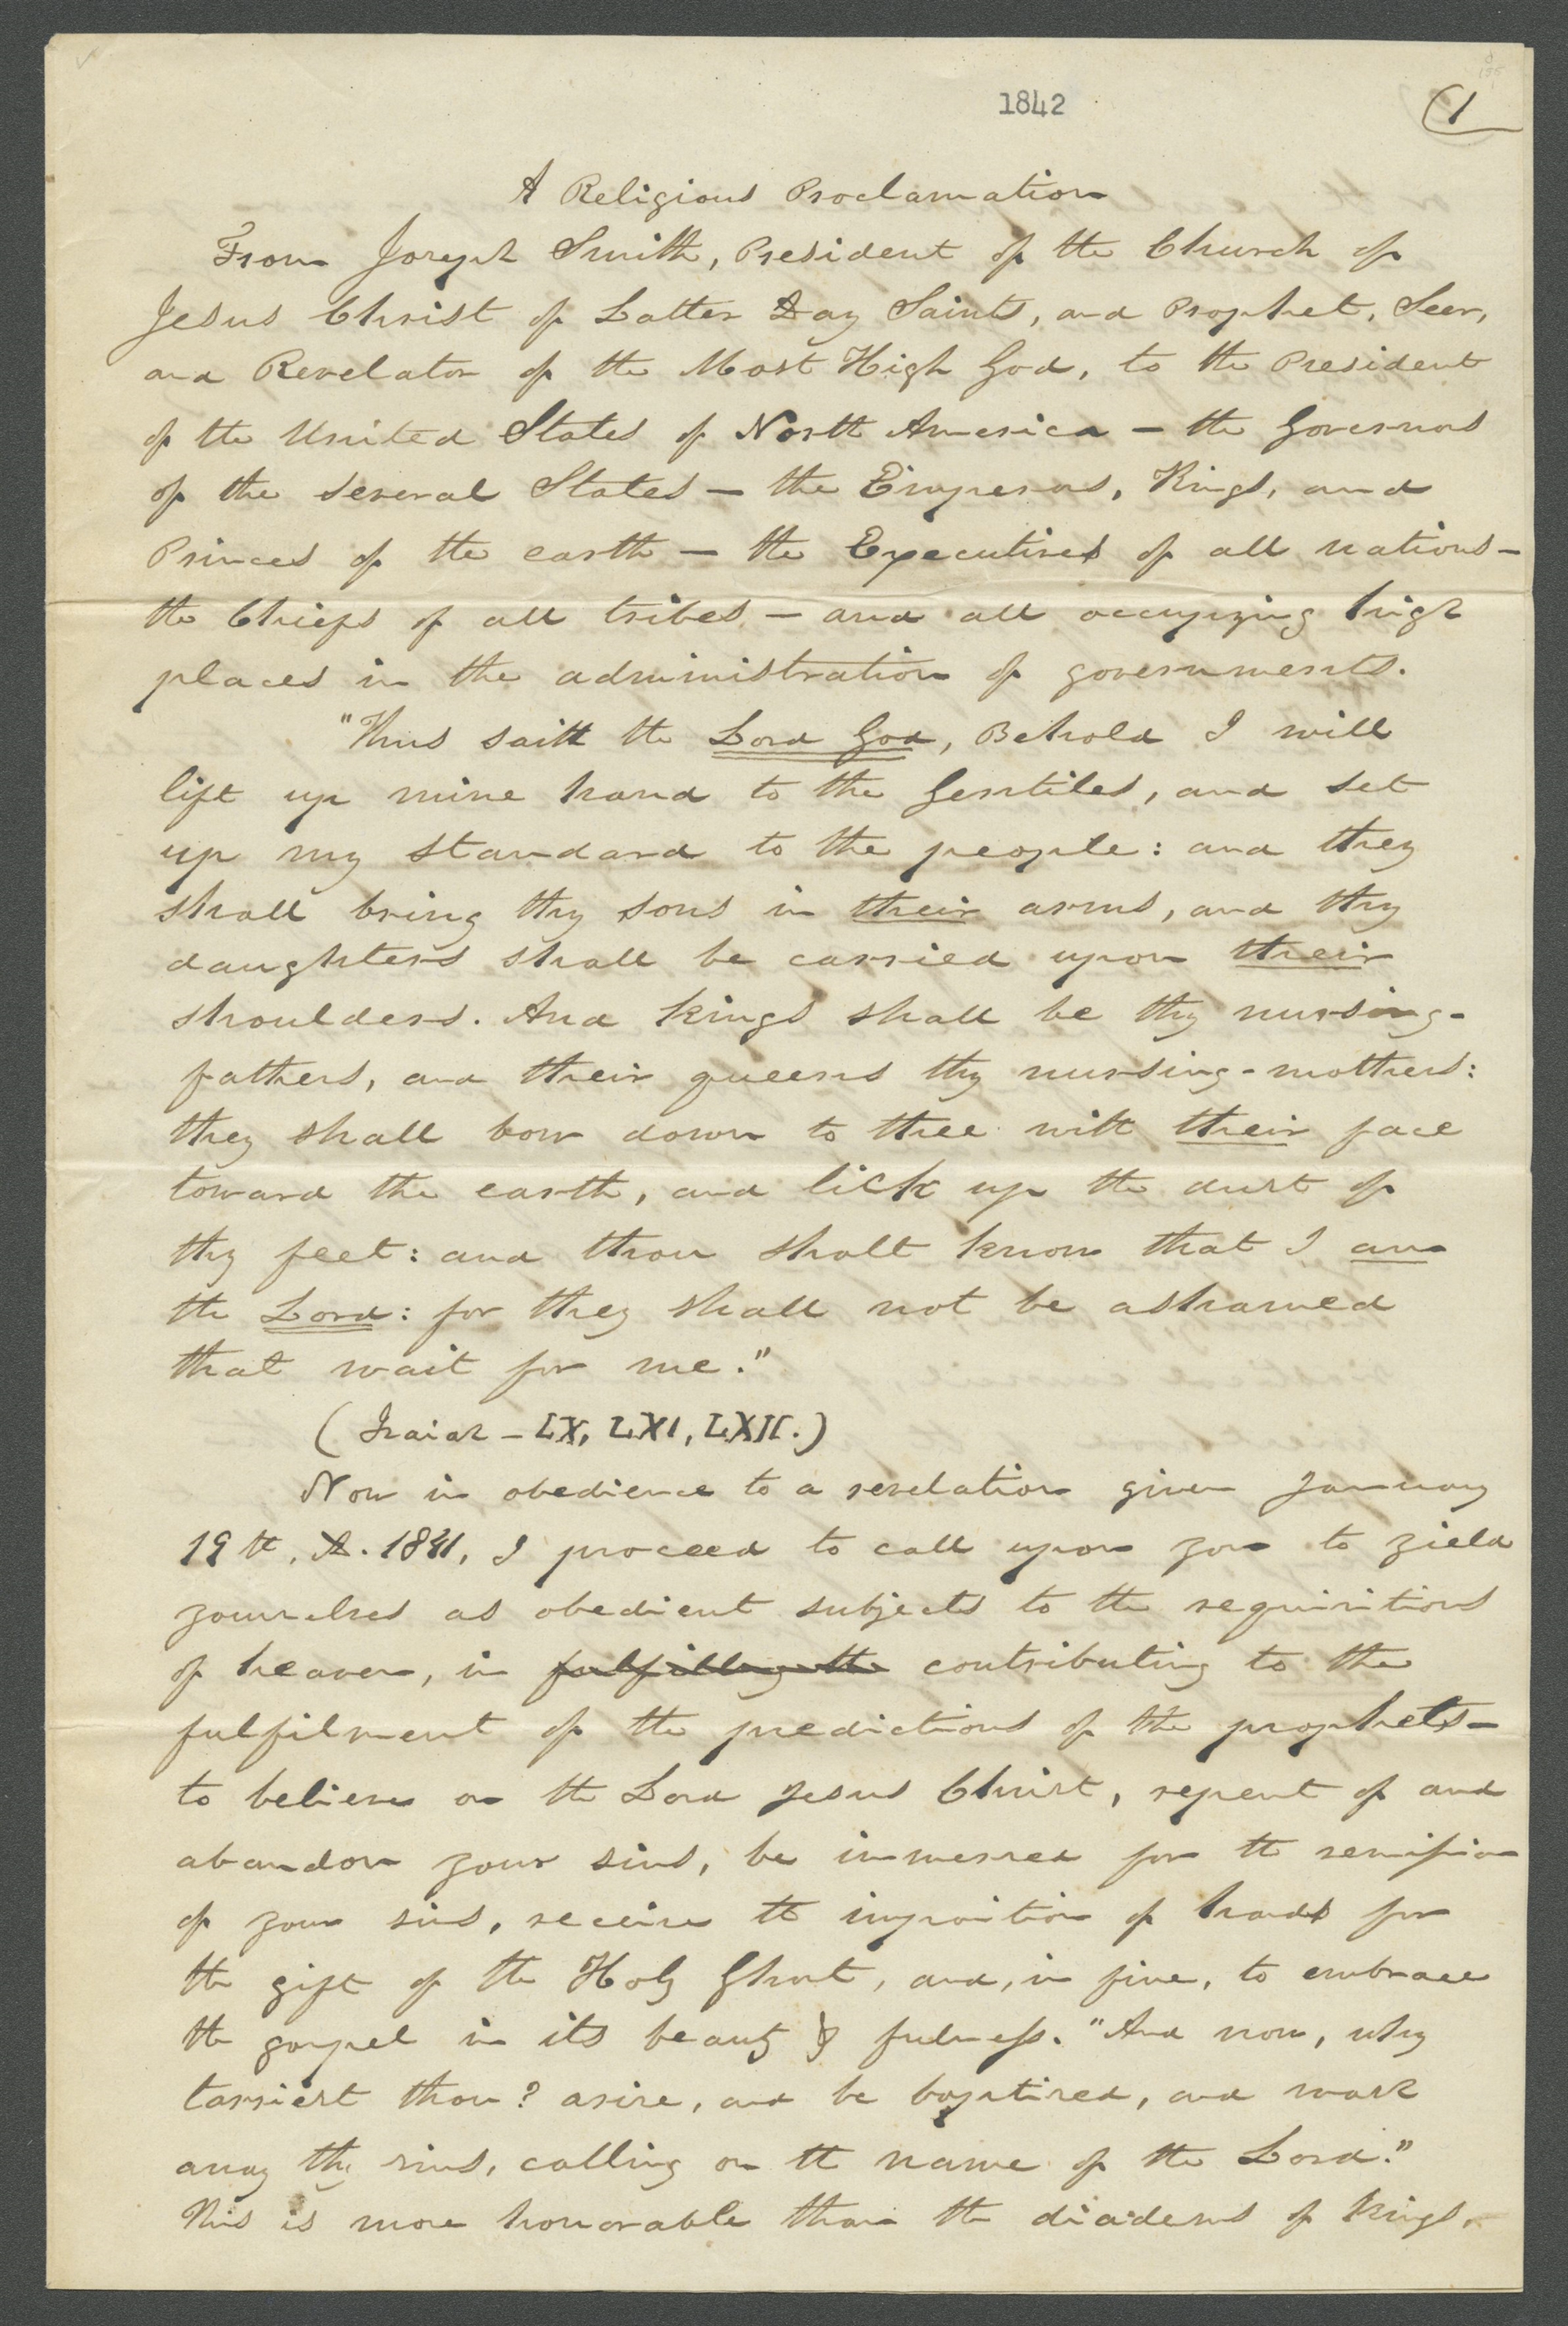 1842
(1
A Religious Proclamation
From Joseph Smith, President of the Church of
Jesus Christ of Latter Day Saints, and Prophet, Seer,
and Revelator of the Most High God, to the President
of the United States of North America — the Governors
of the several States — the Emperors, Kings, and
Princes of the earth — the Executives of all nations —
the Chiefs of all tribes — and all occupying high
places in the administration of governments.
"Thus saith the Lord God, Behold I will
lift up mine hand to the Gentiles, and set
up my standard to the people: and they
shall bring thy sons in their arms, and thy
daughters shall be carried upon their
shoulders. And kings shall be thy nursing-
fathers, and their queens thy nursing-mothers:
they shall bow down to thee with their face
toward the earth, and lick up the dust of
thy feet: and thou shalt know that I am
the Lord: for they shall not be ashamed
that wait for me."
(Isaiah — LX, LXI, LXII.)
Now in obedience to a revelation given January
19th, A. 1841, I proceed to call upon you to yield
yourselves as obedient subjects to the requisitions
of heaven, in fulfilling the contributing to the
fulfilment of the predictions of the prophets —
to believe on the Lord Jesus Christ, repent of and
abandon your sins, be immersed for the remission
of your sins, receive the imposition of hands for
the gift of the Holy Ghost, and, in fine, to embrace
the gospel in its beauty & fulness. "And now, why
tarriest thou? arise, and be baptised, and wash
away thy sins, calling on the name of the Lord."
This is more honorable than the diadems of Kings,